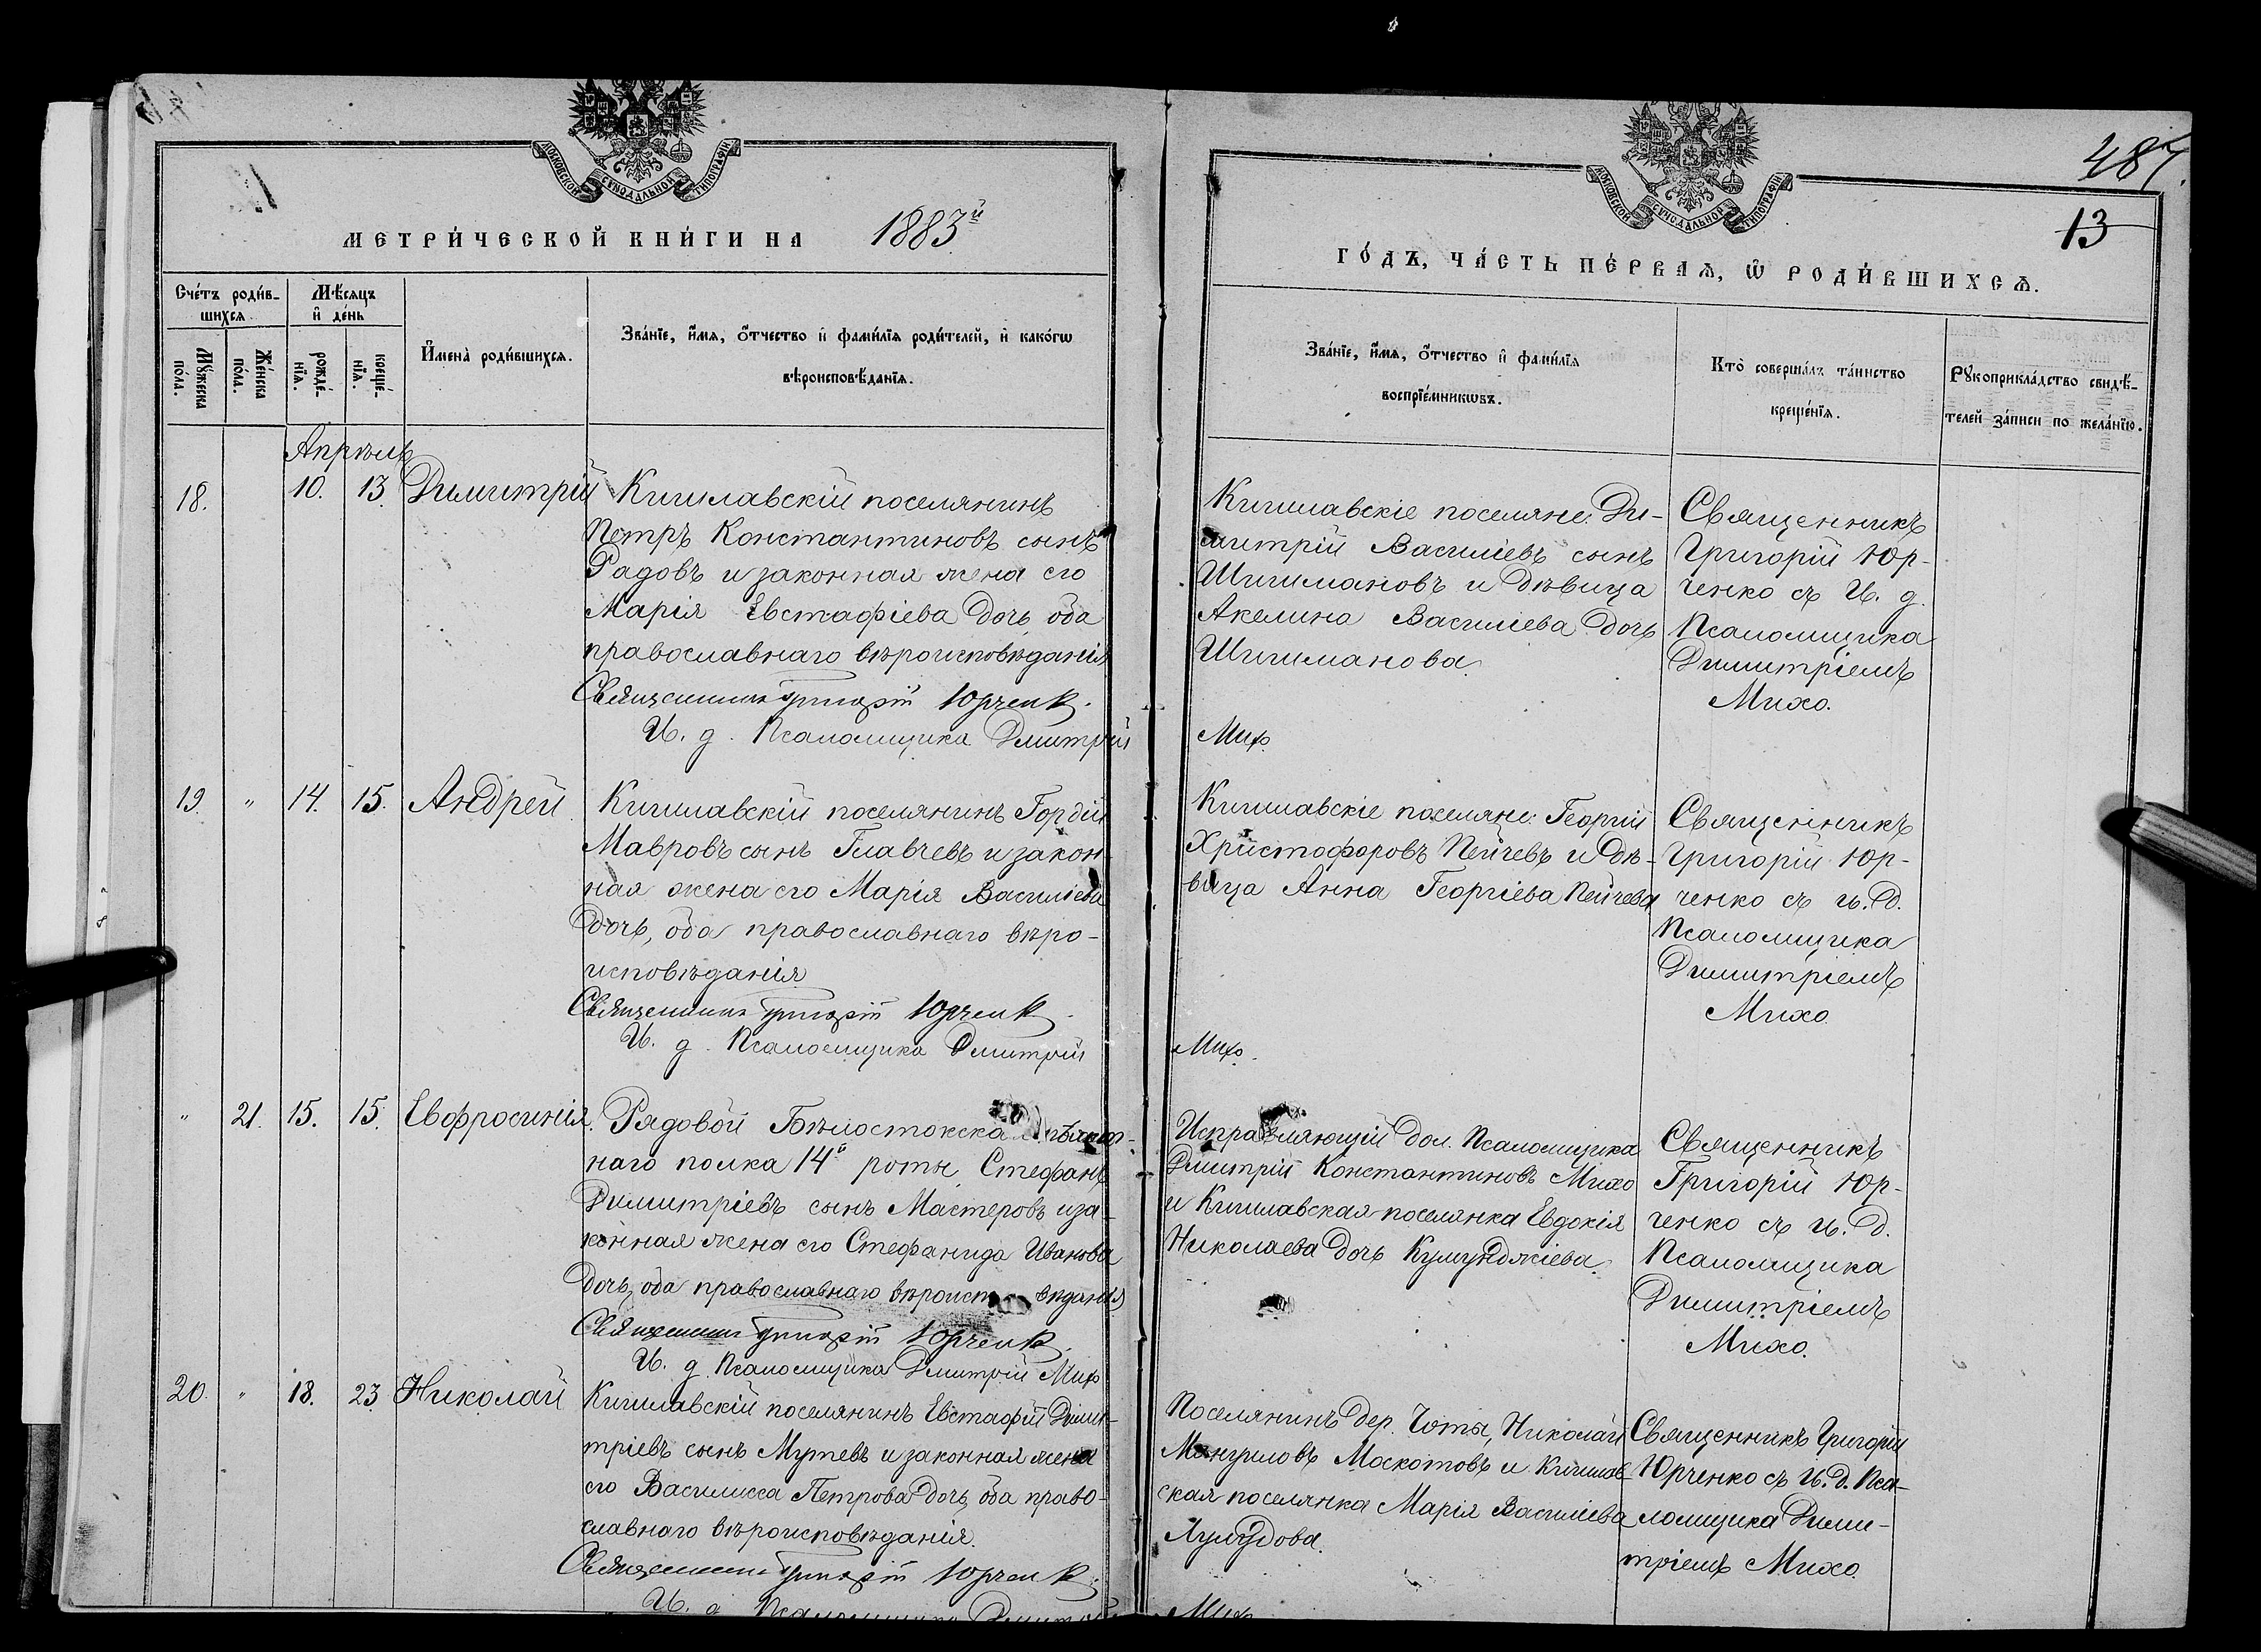 487.
13
МЕТРИ́ЧЕСКОЙ КНИ́ГИ НА 1883й
ГО́ДЪ, ЧА́СТЬ ПЕ́РВАѦ, Ѡ РОДИ́ВШИХСѦ.
МОСКОВСКОЙ СѴНОДАЛЬНОЙ ТИПОГРАФІИ
МОСКОВСКОЙ СѴНОДАЛЬНОЙ ТИПОГРАФІИ
Сче́тъ роди́в-
шихсѧ
Мꙋ́жеска по́ла.
Же́нска по́ла.
Мѣ́сѧцъ
и҆ де́нь
рожде́-
нїѧ.
креще́-
нїѧ.
И҆мена̀ роди́вшихсѧ.
Зва́нїе, и҆́мѧ, ѻ҆́тчество и҆ фами́лїѧ роди́телей, и҆ како́гѡ
вѣроисповѣ́данїѧ.
Зва́нїе, и҆́мѧ, ѻ҆́тчество и҆ фами́лїѧ
воспрїе́мникѡвъ.
Кто̀ соверша́лъ та́инство
креще́нїѧ.
Рꙋкоприкла́дство свидѣ́-
телей за́писи по жела́нїю.
Апрѣль
18. 10. 13. Димитрій
Кишлавскій поселянинъ
Петръ Константиновъ сынъ
Радовъ и законная жена его
Марія Евстафіева дочь, оба
православнаго вѣроисповѣданія
Священникъ Григорій Юрченко.
И. д. Псаломщика Дмитрій Михо.
Кишлавскіе поселяне: Ди-
митрій Василіевъ сынъ
Шишмановъ и дѣвица
Акелина Василіева дочь
Шишманова.
Священникъ
Григорій Юр-
ченко съ И. д.
Псаломщика
Димитріемъ
Михо.
19. " 14. 15. Андрей
Кишлавскій поселянинъ Гордій
Мавровъ сынъ Главчевъ и закон-
ная жена его Марія Василіева
дочь, оба православнаго вѣро-
исповѣданія
Священникъ Григорій Юрченко.
И. д. Псаломщика Дмитрій Михо.
Кишлавскіе поселяне: Георгій
Христофоровъ Пейчевъ и дѣ-
вица Анна Георгіева Пейчева
Священникъ
Григорій Юр-
ченко съ и. д.
Псаломщика
Димитріемъ
Михо.
" 21. 15. 15. Евфросинія.
Рядовой Бѣлостокска
наго полка 14й роты, Стефанъ
Димитріевъ сынъ Мастеровъ и за-
конная жена его Стефанида Иванова
дочь, оба православнаго вѣроисповѣданія
Священникъ Григорій Юрченко.
И. д. Псаломщика Дмитрій Михо
Исправляющій дол. Псаломщика
Дмитрій Константиновъ Михо
и Кишлавская поселянка Евдокія
Николаева дочь Кумунджіева.
Священникъ
Григорій Юр-
ченко съ и. д.
Псаломщика
Димитріемъ
Михо.
20. " 18. 23. Николай
Кишлавскій поселянинъ Евстафій Дими-
тріевъ сынъ Мутевъ и законная жена
его Василисса Петрова дочь, оба право-
славнаго вѣроисповѣданія.
Священникъ Григорій Юрченко.
И. д. Псаломщика Дмитрій Михо
Поселянинъ дер. Чоты, Николай
Москотовъ и Кишлав-
ская поселянка Марія Василіева
Священникъ Григорій
Юрченко съ И. д. Пса-
ломщика Дими-
тріемъ Михо.